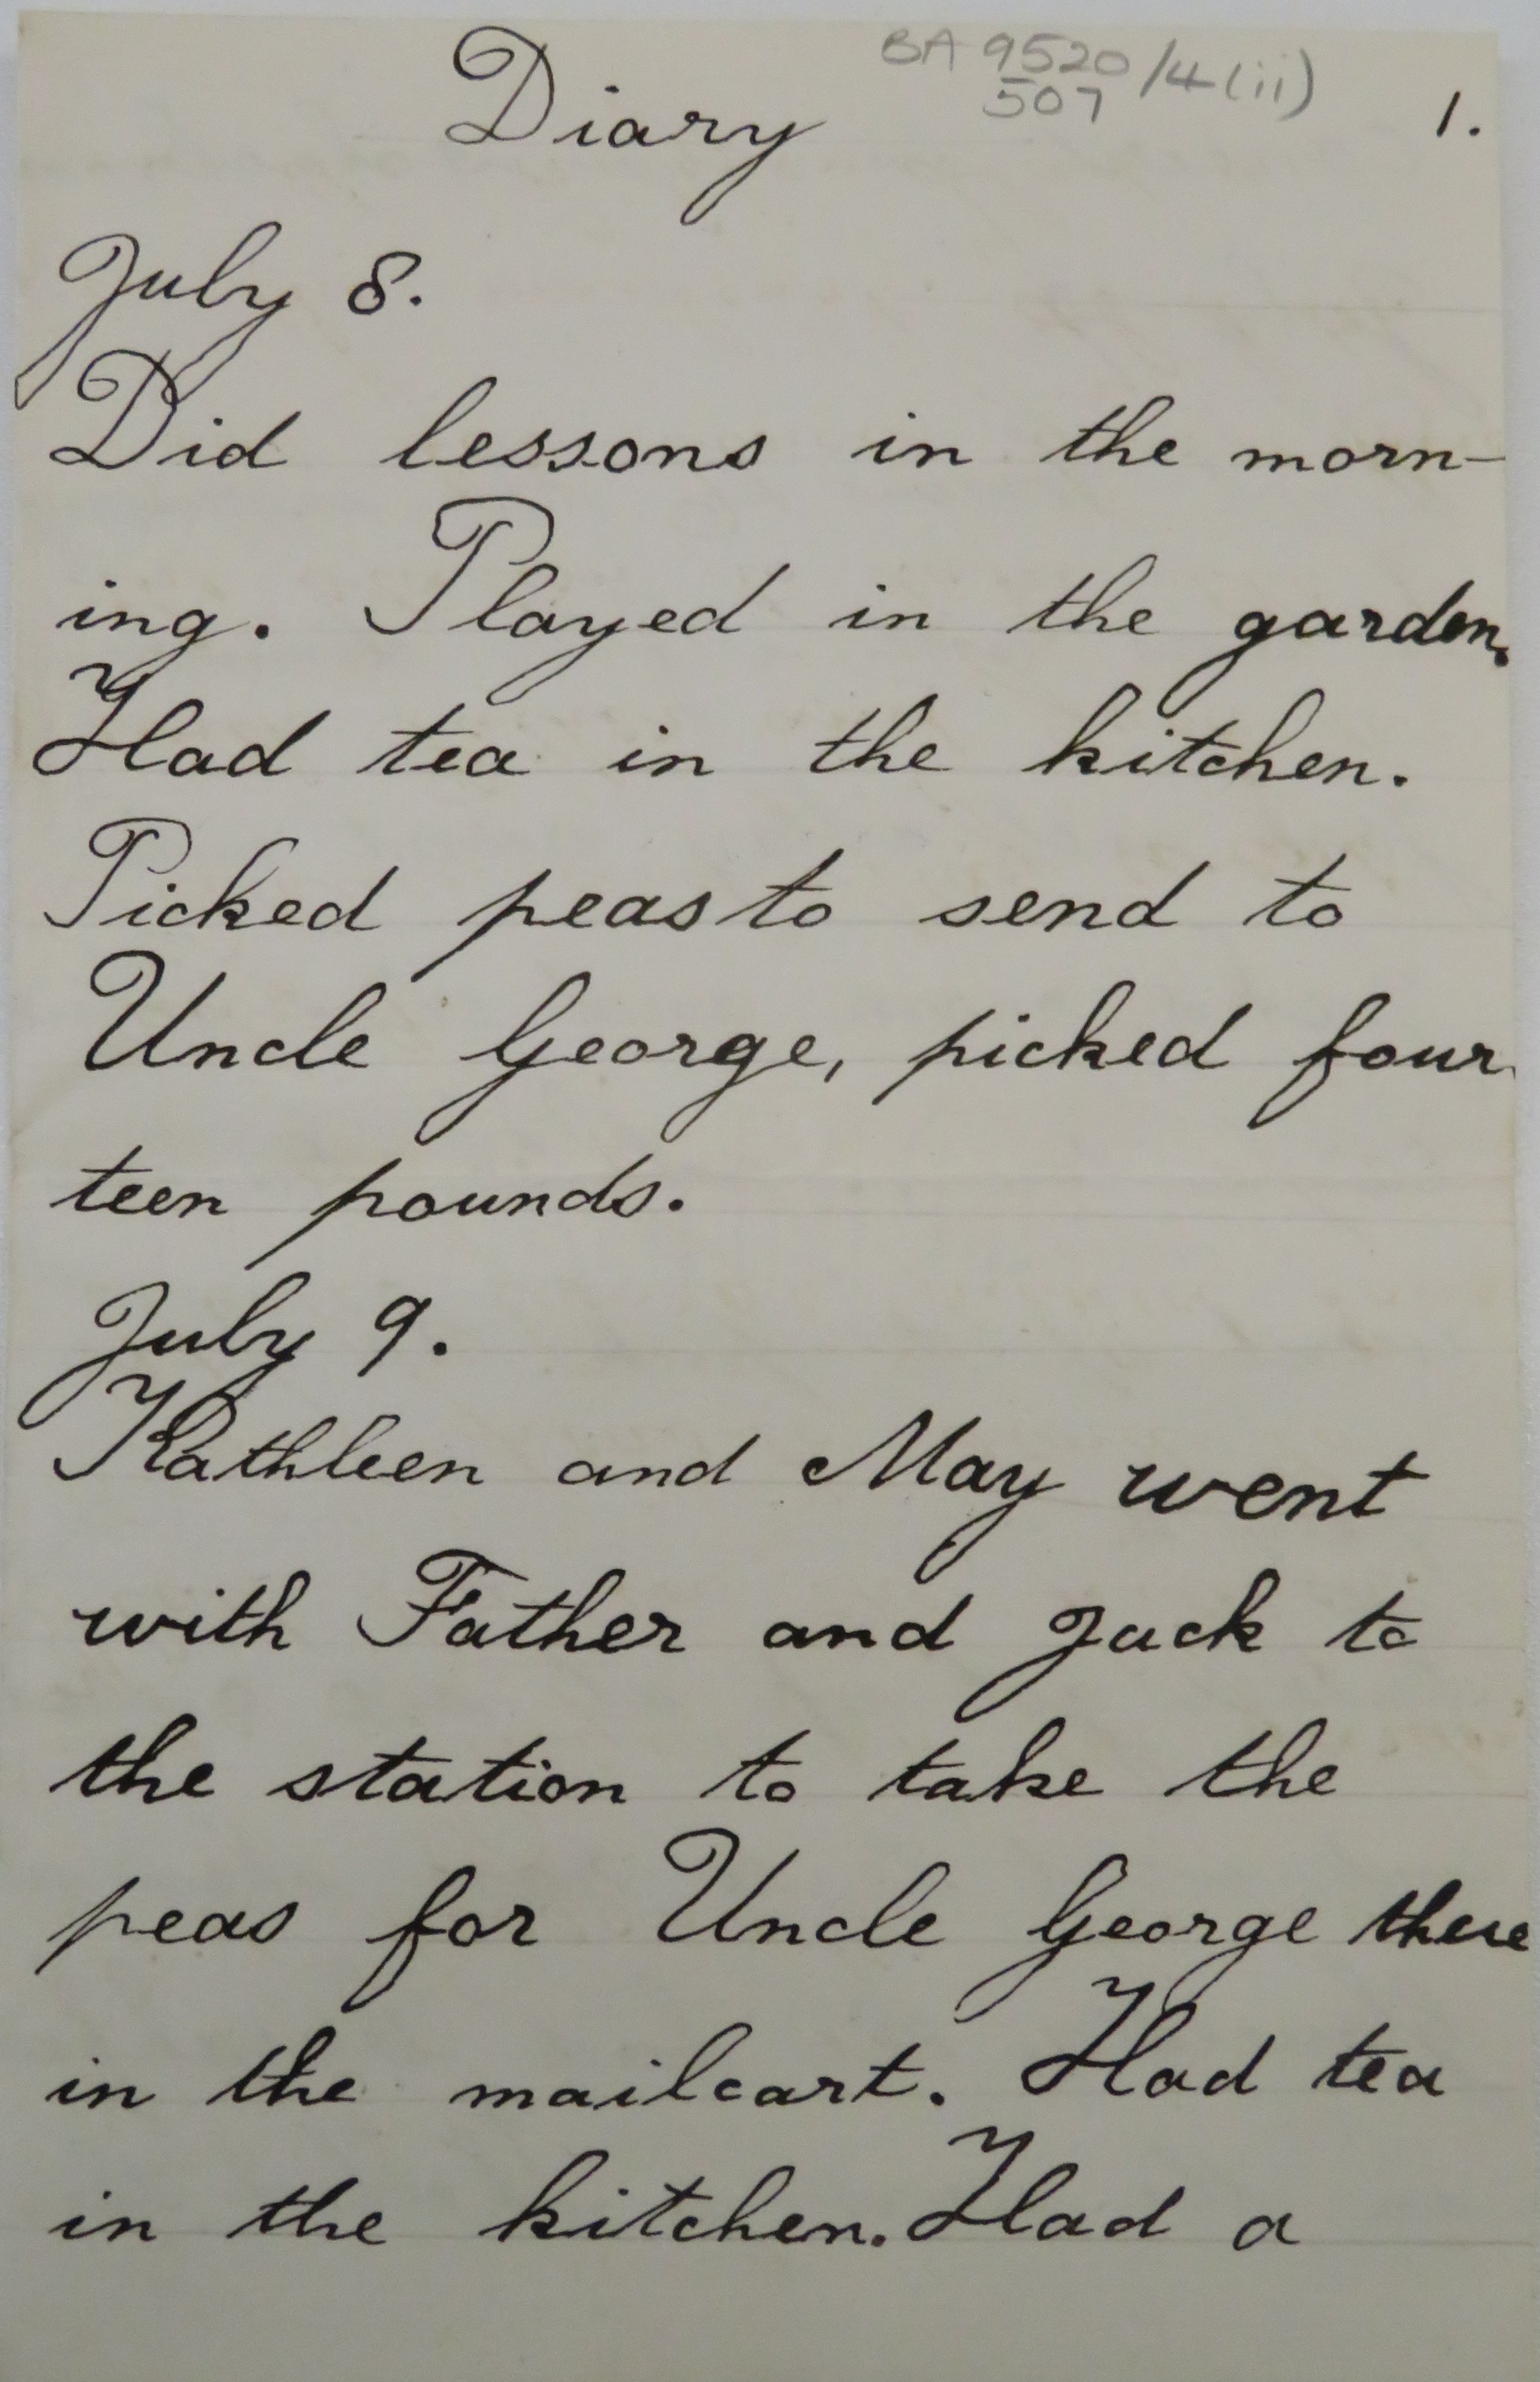 Diary
BA 9520/4(ii)
507
1.
July 8.
Did lessons in the morn-
ing. Played in the garden.
Had tea in the kitchen.
Picked peas to send to
Uncle George, picked four
teen pounds.
July 9.
Kathleen and May went
with Father and Jack to
the station to take the
peas for Uncle George there
in the mailcart. Had tea
in the kitchen. Had a